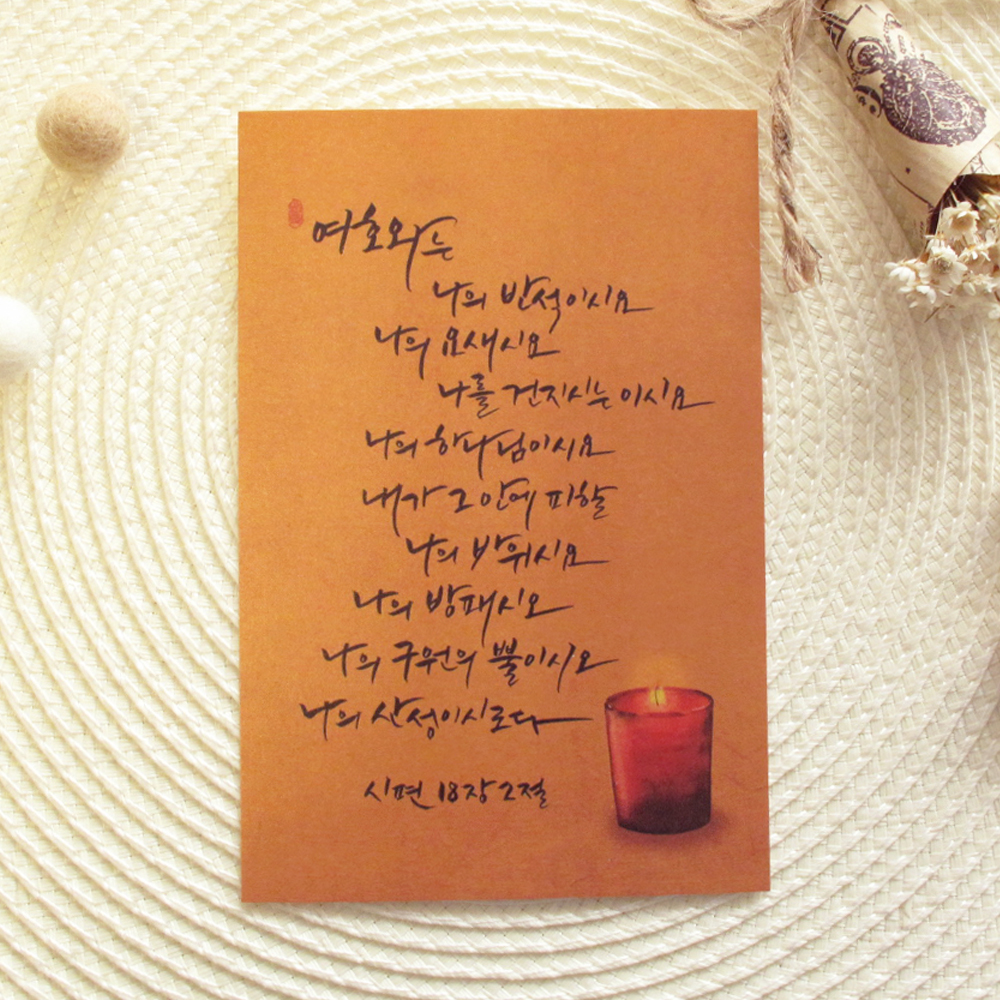 여호와는
나의 반석이시요
나의 요새시요
나를 건지시는 이시요
나의 하나님이시요
내가 그 안에 피할
나의 바위시요
나의 방패시요
나의 구원의 뿔이시요
나의 산성이시로다
시편 18장 2절